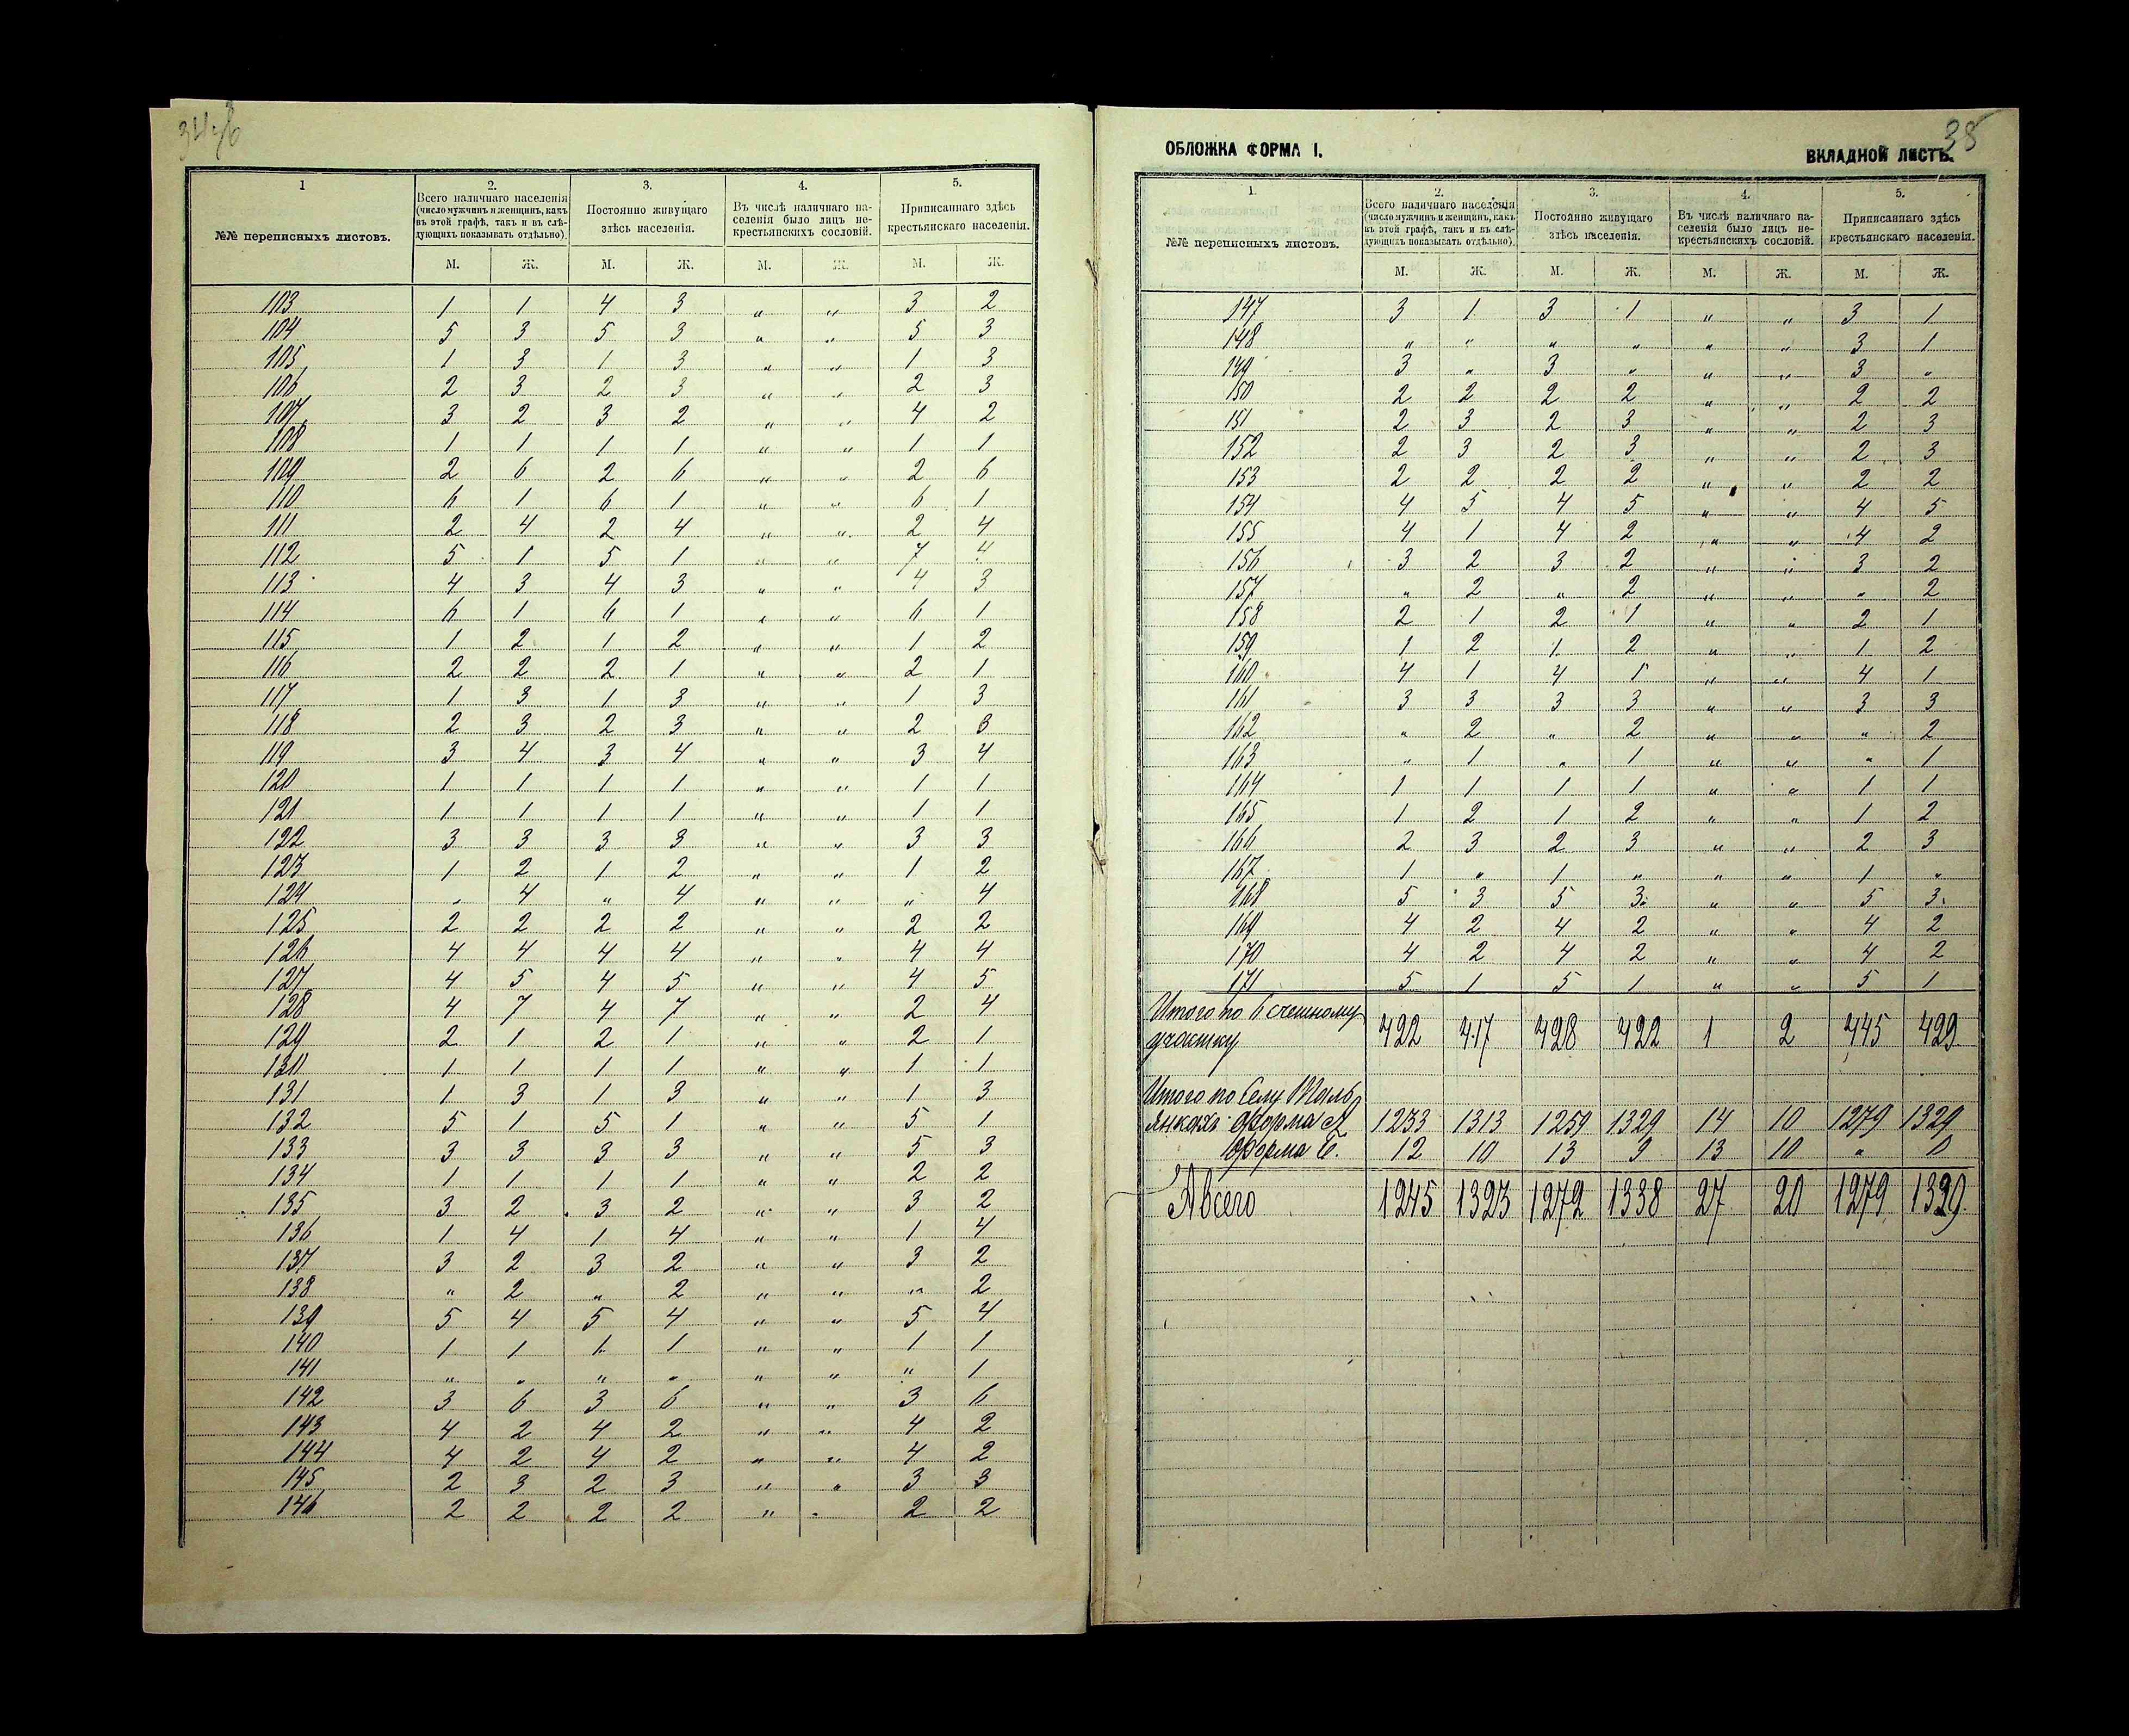 1
2.
3.
4.
5.
№№ переписныхъ листовъ.
Всего наличнаго населенія
(число мужчинъ и женщинъ, какъ
въ этой графѣ, такъ и въ слѣ-
дующихъ показывать отдѣльно).
Постоянно живущаго
здѣсь населенія.
Въ числѣ наличнаго на-
селенія было лицъ не-
крестьянскихъ сословій.
Приписаннаго здѣсь
крестьянскаго населенія.
М. Ж. М. Ж. М. Ж. М. Ж.
103 1 1 4 3 " " 3 2
104 5 3 5 3 " " 5 3
105 1 3 1 3 " " 1 3
106 2 3 2 3 " " 2 3
107 3 2 3 2 " " 4 2
108 1 1 1 1 " " 1 1
109 2 6 2 6 " " 2 6
110 6 1 6 1 " " 6 1
111 2 4 2 4 " " 2 4
112 5 1 5 1 " " 7 4
113 4 3 4 3 " " 4 3
114 6 1 6 1 " " 6 1
115 1 2 1 2 " " 1 2
116 2 2 2 1 " " 2 1
117 1 3 1 3 " " 1 3
118 2 3 2 3 " " 2 3
119 3 4 3 4 " " 3 4
120 1 1 1 1 " " 1 1
121 1 1 1 1 " " 1 1
122 3 3 3 3 " " 3 3
123 1 2 1 2 " " 1 2
124 " 4 " 4 " " " 4
125 2 2 2 2 " " 2 2
126 4 4 4 4 " " 4 4
127 4 5 4 5 " " 4 5
128 4 7 4 7 " " 2 4
129 2 1 2 1 " " 2 1
130 1 1 1 1 " " 1 1
131 1 3 1 3 " " 1 3
132 5 1 5 1 " " 5 1
133 3 3 3 3 " " 5 3
134 1 1 1 1 " " 2 2
135 3 2 3 2 " " 3 2
136 1 4 1 4 " " 1 4
137 3 2 3 2 " " 3 2
138 " 2 " 2 " " " 2
139 5 4 5 4 " " 5 4
140 1 1 1 1 " " 1 1
141 " " " " " " " 1
142 3 6 3 6 " " 3 6
143 4 2 4 2 " " 4 2
144 4 2 4 2 " " 4 2
145 2 3 2 3 " " 3 3
146 2 2 2 2 " " 2 2
38
ОБЛОЖКА ФОРМА I.
ВКЛАДНОЙ ЛИСТЪ.
1.
2.
3.
4.
5.
№№ переписныхъ листовъ.
Всего наличнаго населенія
(число мужчинъ и женщинъ, какъ
въ этой графѣ, такъ и въ слѣ-
дующихъ показывать отдѣльно).
Постоянно живущаго
здѣсь населенія.
Въ числѣ наличнаго на-
селенія было лицъ не-
крестьянскихъ сословій.
Приписаннаго здѣсь
крестьянскаго населенія.
М. Ж. М. Ж. М. Ж. М. Ж.
147 3 1 3 1 " " 3 1
148 " " " " " " 3 1
149 3 " 3 " " " 3 "
150 2 2 2 2 " " 2 2
151 2 3 2 3 " " 2 3
152 2 3 2 3 " " 2 3
153 2 2 2 2 " " 2 2
154 4 5 4 5 " " 4 5
155 4 1 4 2 " " 4 2
156 3 2 3 2 " " 3 2
157 " 2 " 2 " " " 2
158 2 1 2 1 " " 2 1
159 1 2 1 2 " " 1 2
160 4 1 4 1 " " 4 1
161 3 3 3 3 " " 3 3
162 " 2 " 2 " " " 2
163 " 1 " 1 " " " 1
164 1 1 1 1 " " 1 1
165 1 2 1 2 " " 1 2
166 2 3 2 3 " " 2 3
167 1 " 1 " " " 1 "
168 5 3 5 3 " " 5 3
169 4 2 4 2 " " 4 2
170 4 2 4 2 " " 4 2
171 5 1 5 1 " " 5 1
Итого по 6 счетному
участку 422 417 428 422 1 2 445 429
Итого по Селу Таль
янкахъ форма А 1233 1313 1259 1329 14 10 1279 1329
Форма Б. 12 10 13 9 13 10 " 0
Авсего 1245 1323 1272 1338 27 20 1279 1329.